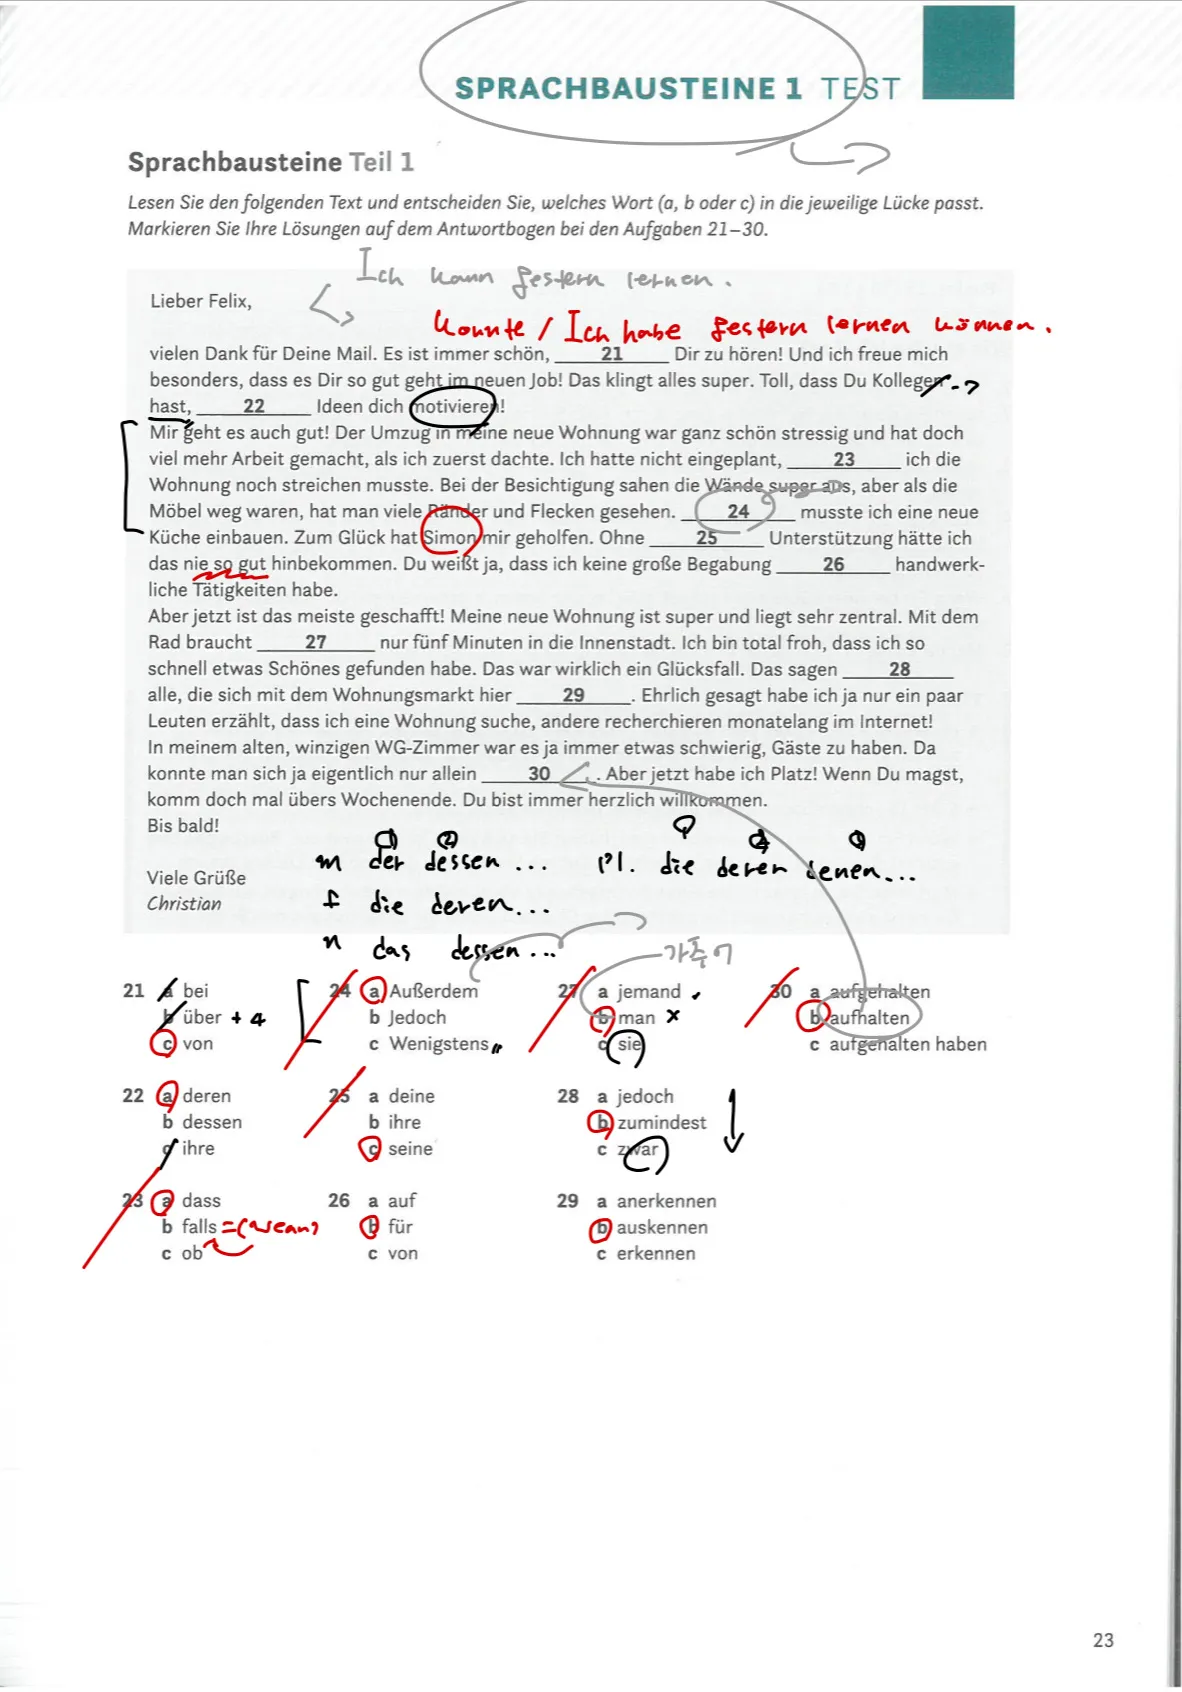 SPRACHBAUSTEINE 1 TEST
Sprachbausteine Teil 1
Lesen Sie den folgenden Text und entscheiden Sie, welches Wort (a, b oder c) in die jeweilige Lücke passt.
Markieren Sie Ihre Lösungen auf dem Antwortbogen bei den Aufgaben 21–30.
Ich kann gestern lernen.
Lieber Felix,
konnte / Ich habe gestern lernen können.
vielen Dank für Deine Mail. Es ist immer schön, 21 Dir zu hören! Und ich freue mich
besonders, dass es Dir so gut geht im neuen Job! Das klingt alles super. Toll, dass Du Kollegen
hast, 22 Ideen dich motivieren!
Mir geht es auch gut! Der Umzug in meine neue Wohnung war ganz schön stressig und hat doch
viel mehr Arbeit gemacht, als ich zuerst dachte. Ich hatte nicht eingeplant, 23 ich die
Wohnung noch streichen musste. Bei der Besichtigung sahen die Wände super aus, aber als die
Möbel weg waren, hat man viele Ränder und Flecken gesehen. 24 musste ich eine neue
Küche einbauen. Zum Glück hat Simon mir geholfen. Ohne 25 Unterstützung hätte ich
das nie so gut hinbekommen. Du weißt ja, dass ich keine große Begabung 26 handwerk-
liche Tätigkeiten habe.
Aber jetzt ist das meiste geschafft! Meine neue Wohnung ist super und liegt sehr zentral. Mit dem
Rad braucht 27 nur fünf Minuten in die Innenstadt. Ich bin total froh, dass ich so
schnell etwas Schönes gefunden habe. Das war wirklich ein Glücksfall. Das sagen 28
alle, die sich mit dem Wohnungsmarkt hier 29. Ehrlich gesagt habe ich ja nur ein paar
Leuten erzählt, dass ich eine Wohnung suche, andere recherchieren monatelang im Internet!
In meinem alten, winzigen WG-Zimmer war es ja immer etwas schwierig, Gäste zu haben. Da
konnte man sich ja eigentlich nur allein 30. Aber jetzt habe ich Platz! Wenn Du magst,
komm doch mal übers Wochenende. Du bist immer herzlich willkommen.
Bis bald!
m der dessen ... Pl. die deren denen...
Viele Grüße
Christian
f die deren...
n das dessen ...
가주어
21 a bei
b über + 4
c von
22 a deren
b dessen
c ihre
23 a dass
b falls =(wenn)
c ob
24 a Außerdem
b Jedoch
c Wenigstens
25 a deine
b ihre
c seine
26 a auf
b für
c von
27 a jemand
b man x
c sie
28 a jedoch
b zumindest
c zwar
29 a anerkennen
b auskennen
c erkennen
30 a aufgehalten
b aufhalten
c aufgehalten haben
23